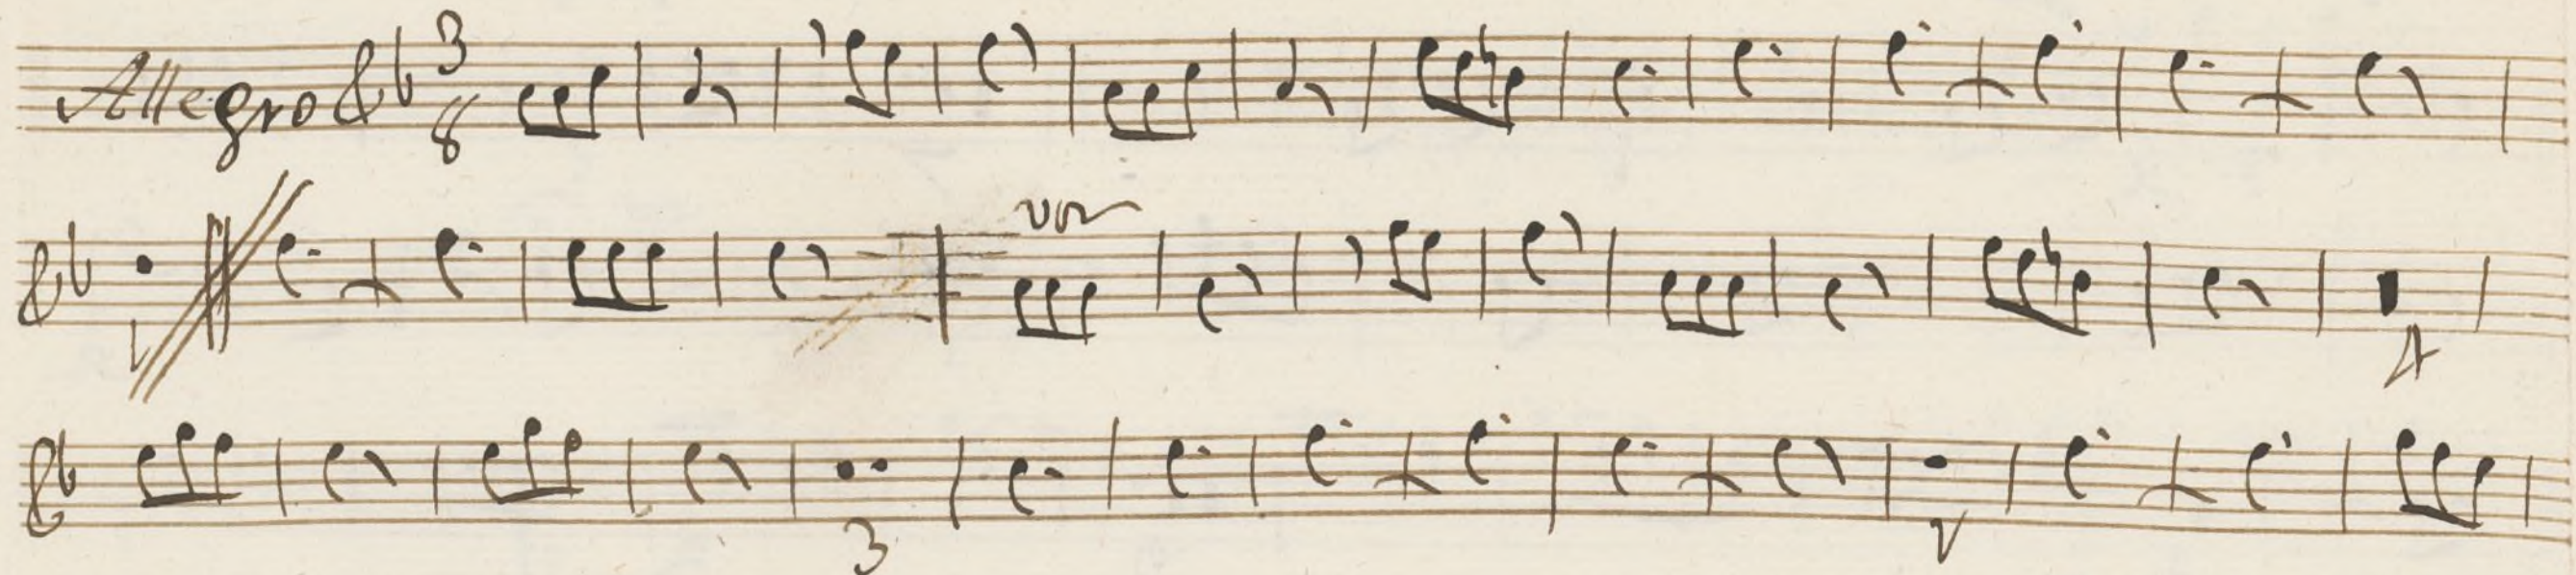 Allegro 3
8
4
3